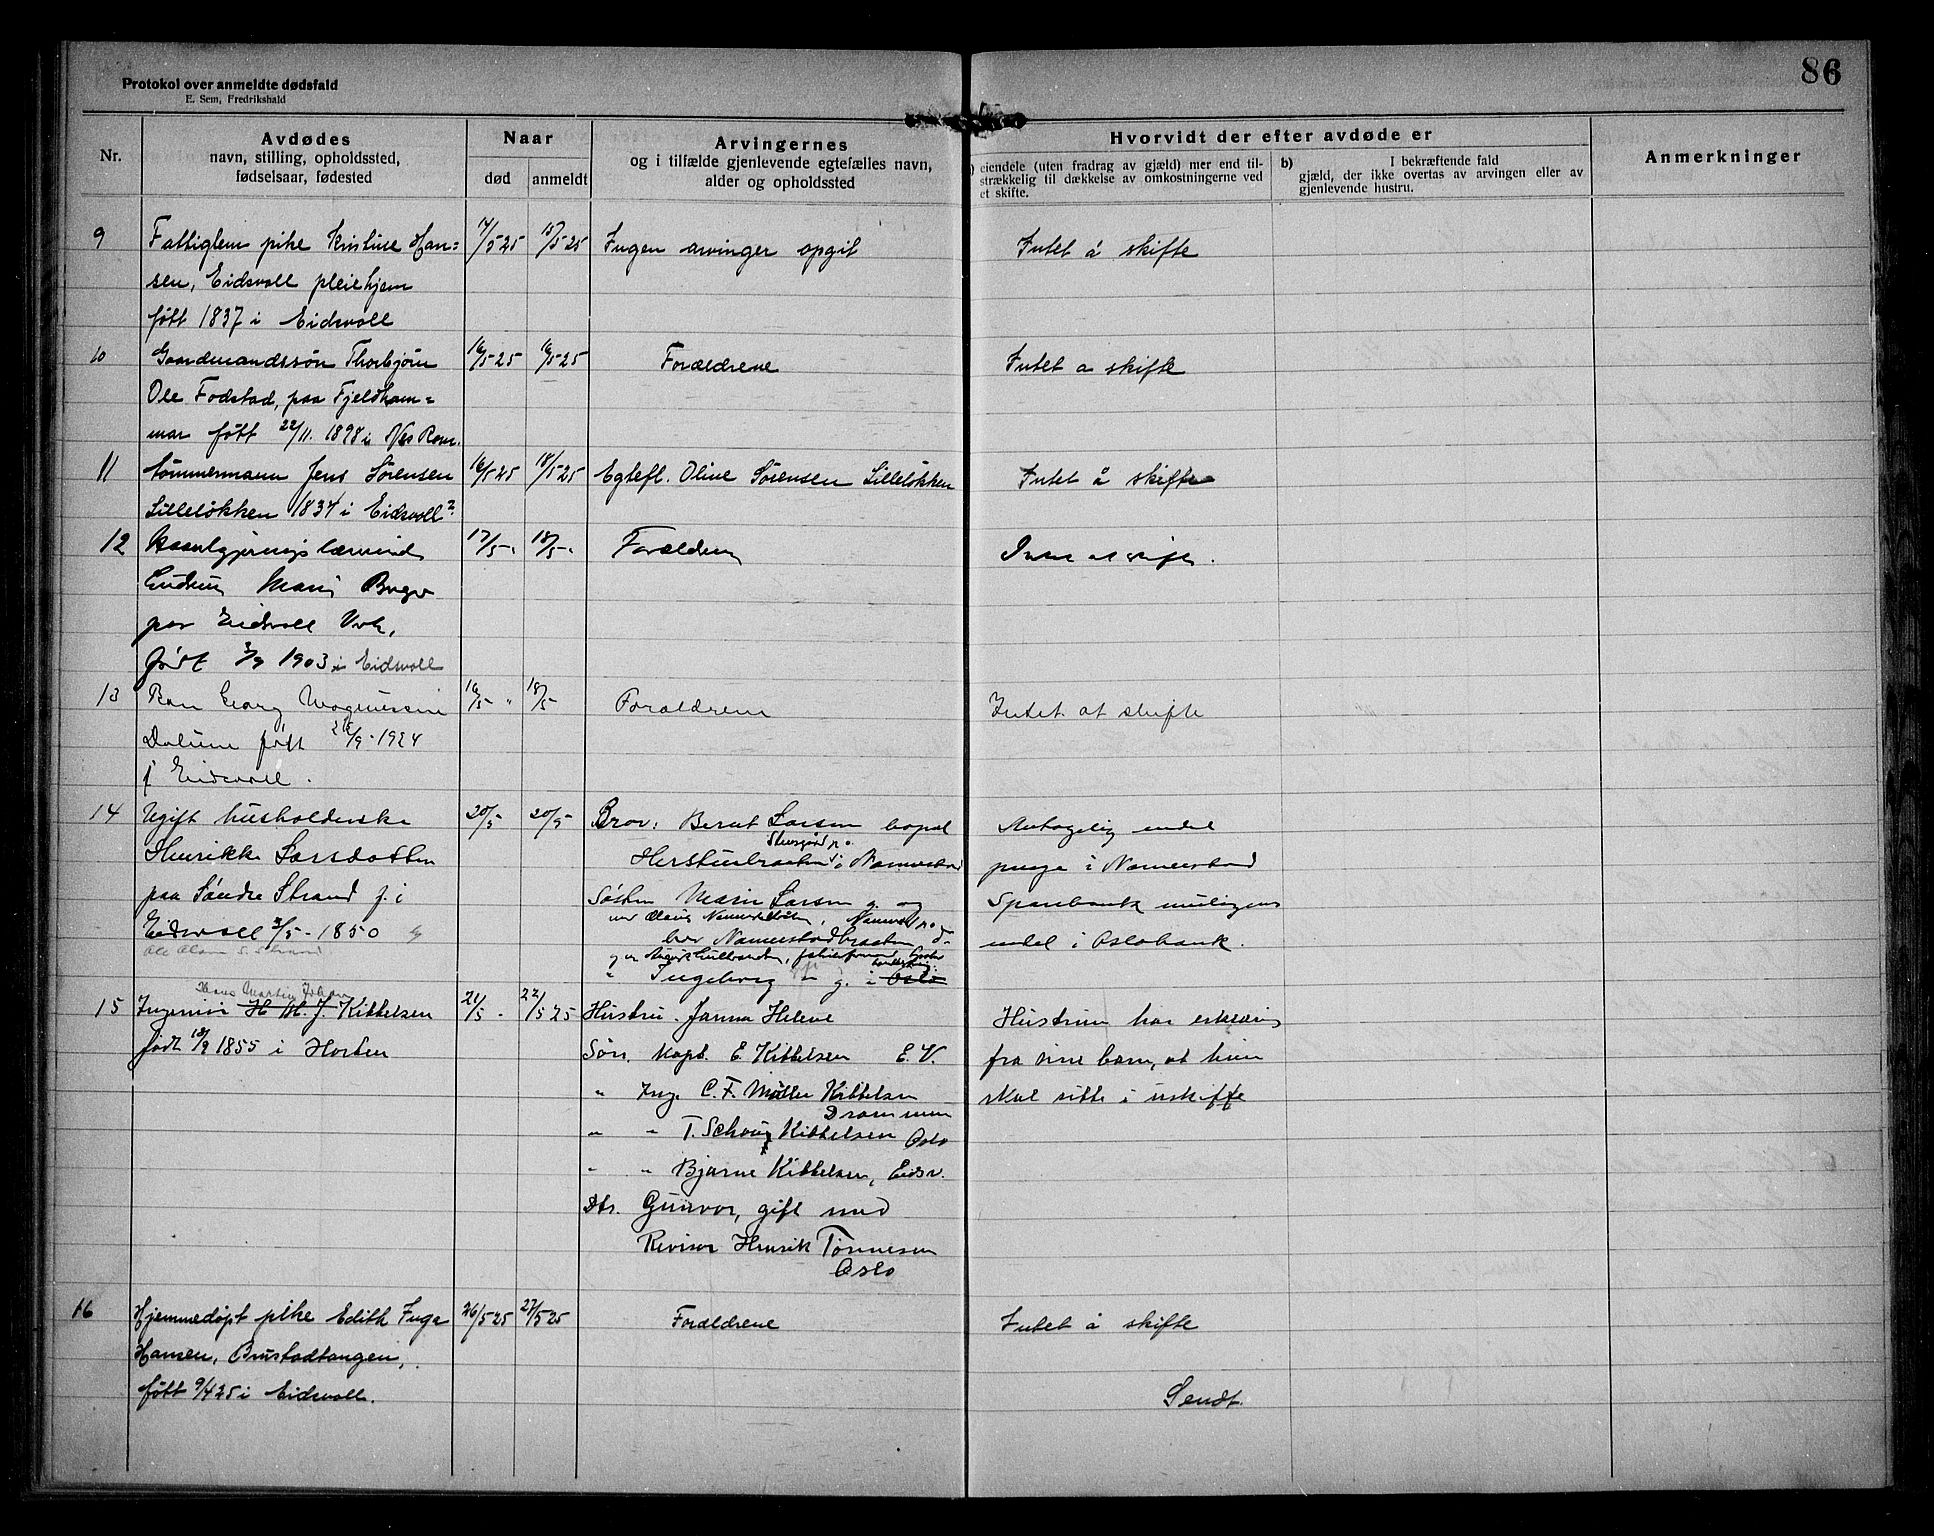 86
Protokol over anmeldte dødsfald
E. Sem, Fredrikshald
Nr.
Avdødes
navn, stilling, opholdssted,
fødselsaar, fødested
Naar
død
anmeldt
Arvingernes
og i tilfælde gjenlevende egtefælles navn,
alder og opholdssted
Hvorvidt der efter avdøde er
eiendele (uten fradrag av gjæld) mer end til-
strækkelig til dækkelse av omkostningerne ved
et skifte.
b) I bekræftende fald
gjæld, der ikke overtas av arvingen eller av
gjenlevende hustru.
Anmerkninger
9 Fattiglem pike Kristine Han= 14/5 25 15/5 25 Ingen arvinger opgit Intet å skifte
sen, Eidsvoll pleiehjem
født 1837 i Eidsvoll
10 Gaardmandssøn Thorbjørn 16/5 25 16/5 25 Forældrene Intet a skifte
Ole Fodstad, paa Fjeldham=
mar født 22/11. 1898 i Nes Rom.
11 Tømmermann Jens Sørensen 16/5 25 18/5 25 Egtefl. Oline Sørensen Lilleløkken Intet å skifte
Lilleløkken 1834 i Eidsvoll?
12 17/5 " 18/5 " Forældrene
Marie
paa Eidsvoll Verk,
født 3/9 1903 i Eidsvoll
13 Barn Georg Magnussen 16/5 " 18/5 Forældrene Intet at skifte
født 25/9-1924
i Eidsvoll.
14 Ugift husholderske 20/5 20/5 Bror: Bernt Larsen bopæl Antagelig endel
Henrikke Larsdatter penge i Namerstad
paa Søndre Strand f. i Søster Marie Larsen g. Sparebank muligens
Eidsvoll 3/5-1850 endel i Oslobank.
Ingeborg g. i Oslo
Hans Martin Johan
15 Ingeniør H. M. J. Kittelsen 21/5 - 22/5 25 Hustru. Janna Helene Hustruen har erklæring
født 18/9 1855 i Horten Søn. Kapt. E. Kittelsen E. V. fra sine barn, at hun
" Ing. C. F. Müller Kittelsen skal sitte i uskifte
Drammen
" " T. Schou Kittelsen Oslo
" " Bjarne Kittelsen, Eidsv.
Dtr. Gunvor, gift med
Revisor Henrik Tønnesen
Oslo
16 Hjemmedøpt pike Edith Inga 26/5 25 27/5 25 Forældrene Intet å skifte
Hansen, Brustadtangen,
født 9/4 25 i Eidsvoll.
Sendt.